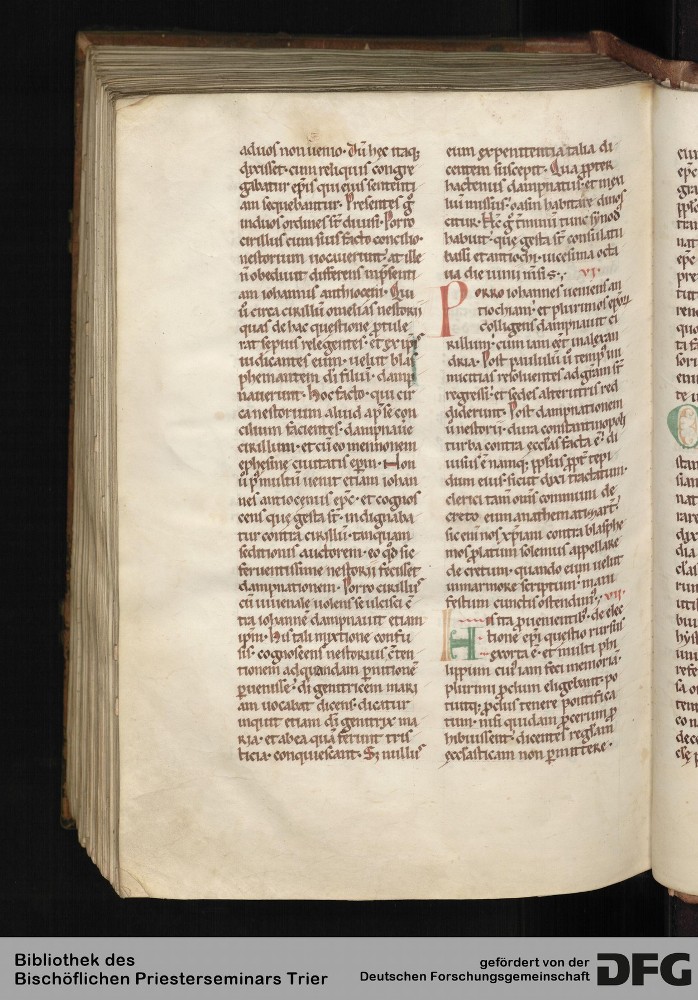 aduos non uenio. Dũ hęc itaq;
dixisset. cum reliquis congre
gabatur ep̃is qui eius sententi
am sequebantur. Presentes g̊
induos ordines st̃ diuisi. Porro
cirillus cum suis facto concilio.
nestorium uocauerunt. at ille
ñ obediuit differens
am iohannis anthioceni. Qui
ũ circa cirillũ omelias nestorii
quas de hac questione ptule
rat sepius relegentes. et ex ipis
iudicantes eum. uelut blas
phemantem dĩ filiũ. damp
nauerunt. Hoc facto. qui cir
ca nestorium aliud ap̃ se con
cilium facientes. dampnaue
cirillum. et cũ eo mennonem
ephesine ciuitatis epm. Non
ũ p̃ multũ uenit etiam iohan
nes antiocenus ep̃c. et cognos
cens quę gesta st̃. indignaba
tur contra cirillũ. tanquam
seditionis auctorem. eo qd̃ sic
feruentissime nestorii fecisset
dampnationem. Porro cirillus
cũ iuuenale uolens se ulcisci c̃
tra iohannẽ dampnauit etiam
ipm. His tali mixtione confu
sis. cognoscens nestorius c̃ten
tionem ad quandam pnitionẽ
puenisse. dĩ genitricem mari
am uocabat dicens. dicatur
inquit etiam dĩ genitrix ma
ria. et abea quã ferunt tris
ticia. conquiescant. S; nullus
eum ex penitentia talia di
centem suscepit. Qua ppter
hactenus dampnatus. et in exi
lium missus. oasin habitare dinos
citur. Hęc g̊ t̃minũ tunc synod
habuit. quę gesta st̃ consulatu
bassi et antiochi. uicesima octa
ua die iunii m̃sis. VI.
Porro iohannes ueniens an
tiochiam. et plurimos ep̃os
colligens dampnauit ci
rillum. cum iam eẽt in alexan
dria. Post paululũ ũ tempus in
imicitias resoluentes ad gr̃am st̃
regressi. et sedes alterutris red
diderunt. Post dampnationem
ũ nestorii. dira constantinopoli
turba contra ecclas facta ẽ. di
uisus ẽ namq; pplus ppt̃ tepi
dum eius. sicut dixi tractatum.
clerici tam om̃s communi de
creto eum anathematizart.
sic eni nos xpiani contra blasphe
mos platum solemus appellare
decretum. quando eum uelut
in marmore scriptum. mani
festum cunctis ostendim;. VII.
His ita puenientib;. de elec
tione epi questio rursus
exorta ẽ. et multi phi
lippum cui; iam feci memoriã.
plurimi pclum eligebant. po
tuitq; pclus tenere pontifica
tum. nisi quidam pcerum p
hibuissent. dicentes reglam
ecclasticam non pmittere.
Bibliothek des
Bischöflichen Priesterseminars Trier
gefördert von der
Deutschen Forschungsgemeinschaft
DFG